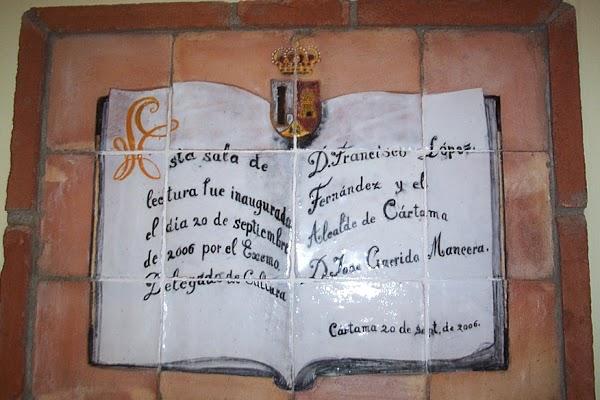 Esta sala de
lectura fue inaugurada
el dia 20 de septiembre
de 2006 por el Exemo.
Delegado de Cultura
D. Francisco López
Fernández y el
Alcalde de Cártama
D. Jose Garrido Mancera.
Cártama 20 de Sept. de 2006.